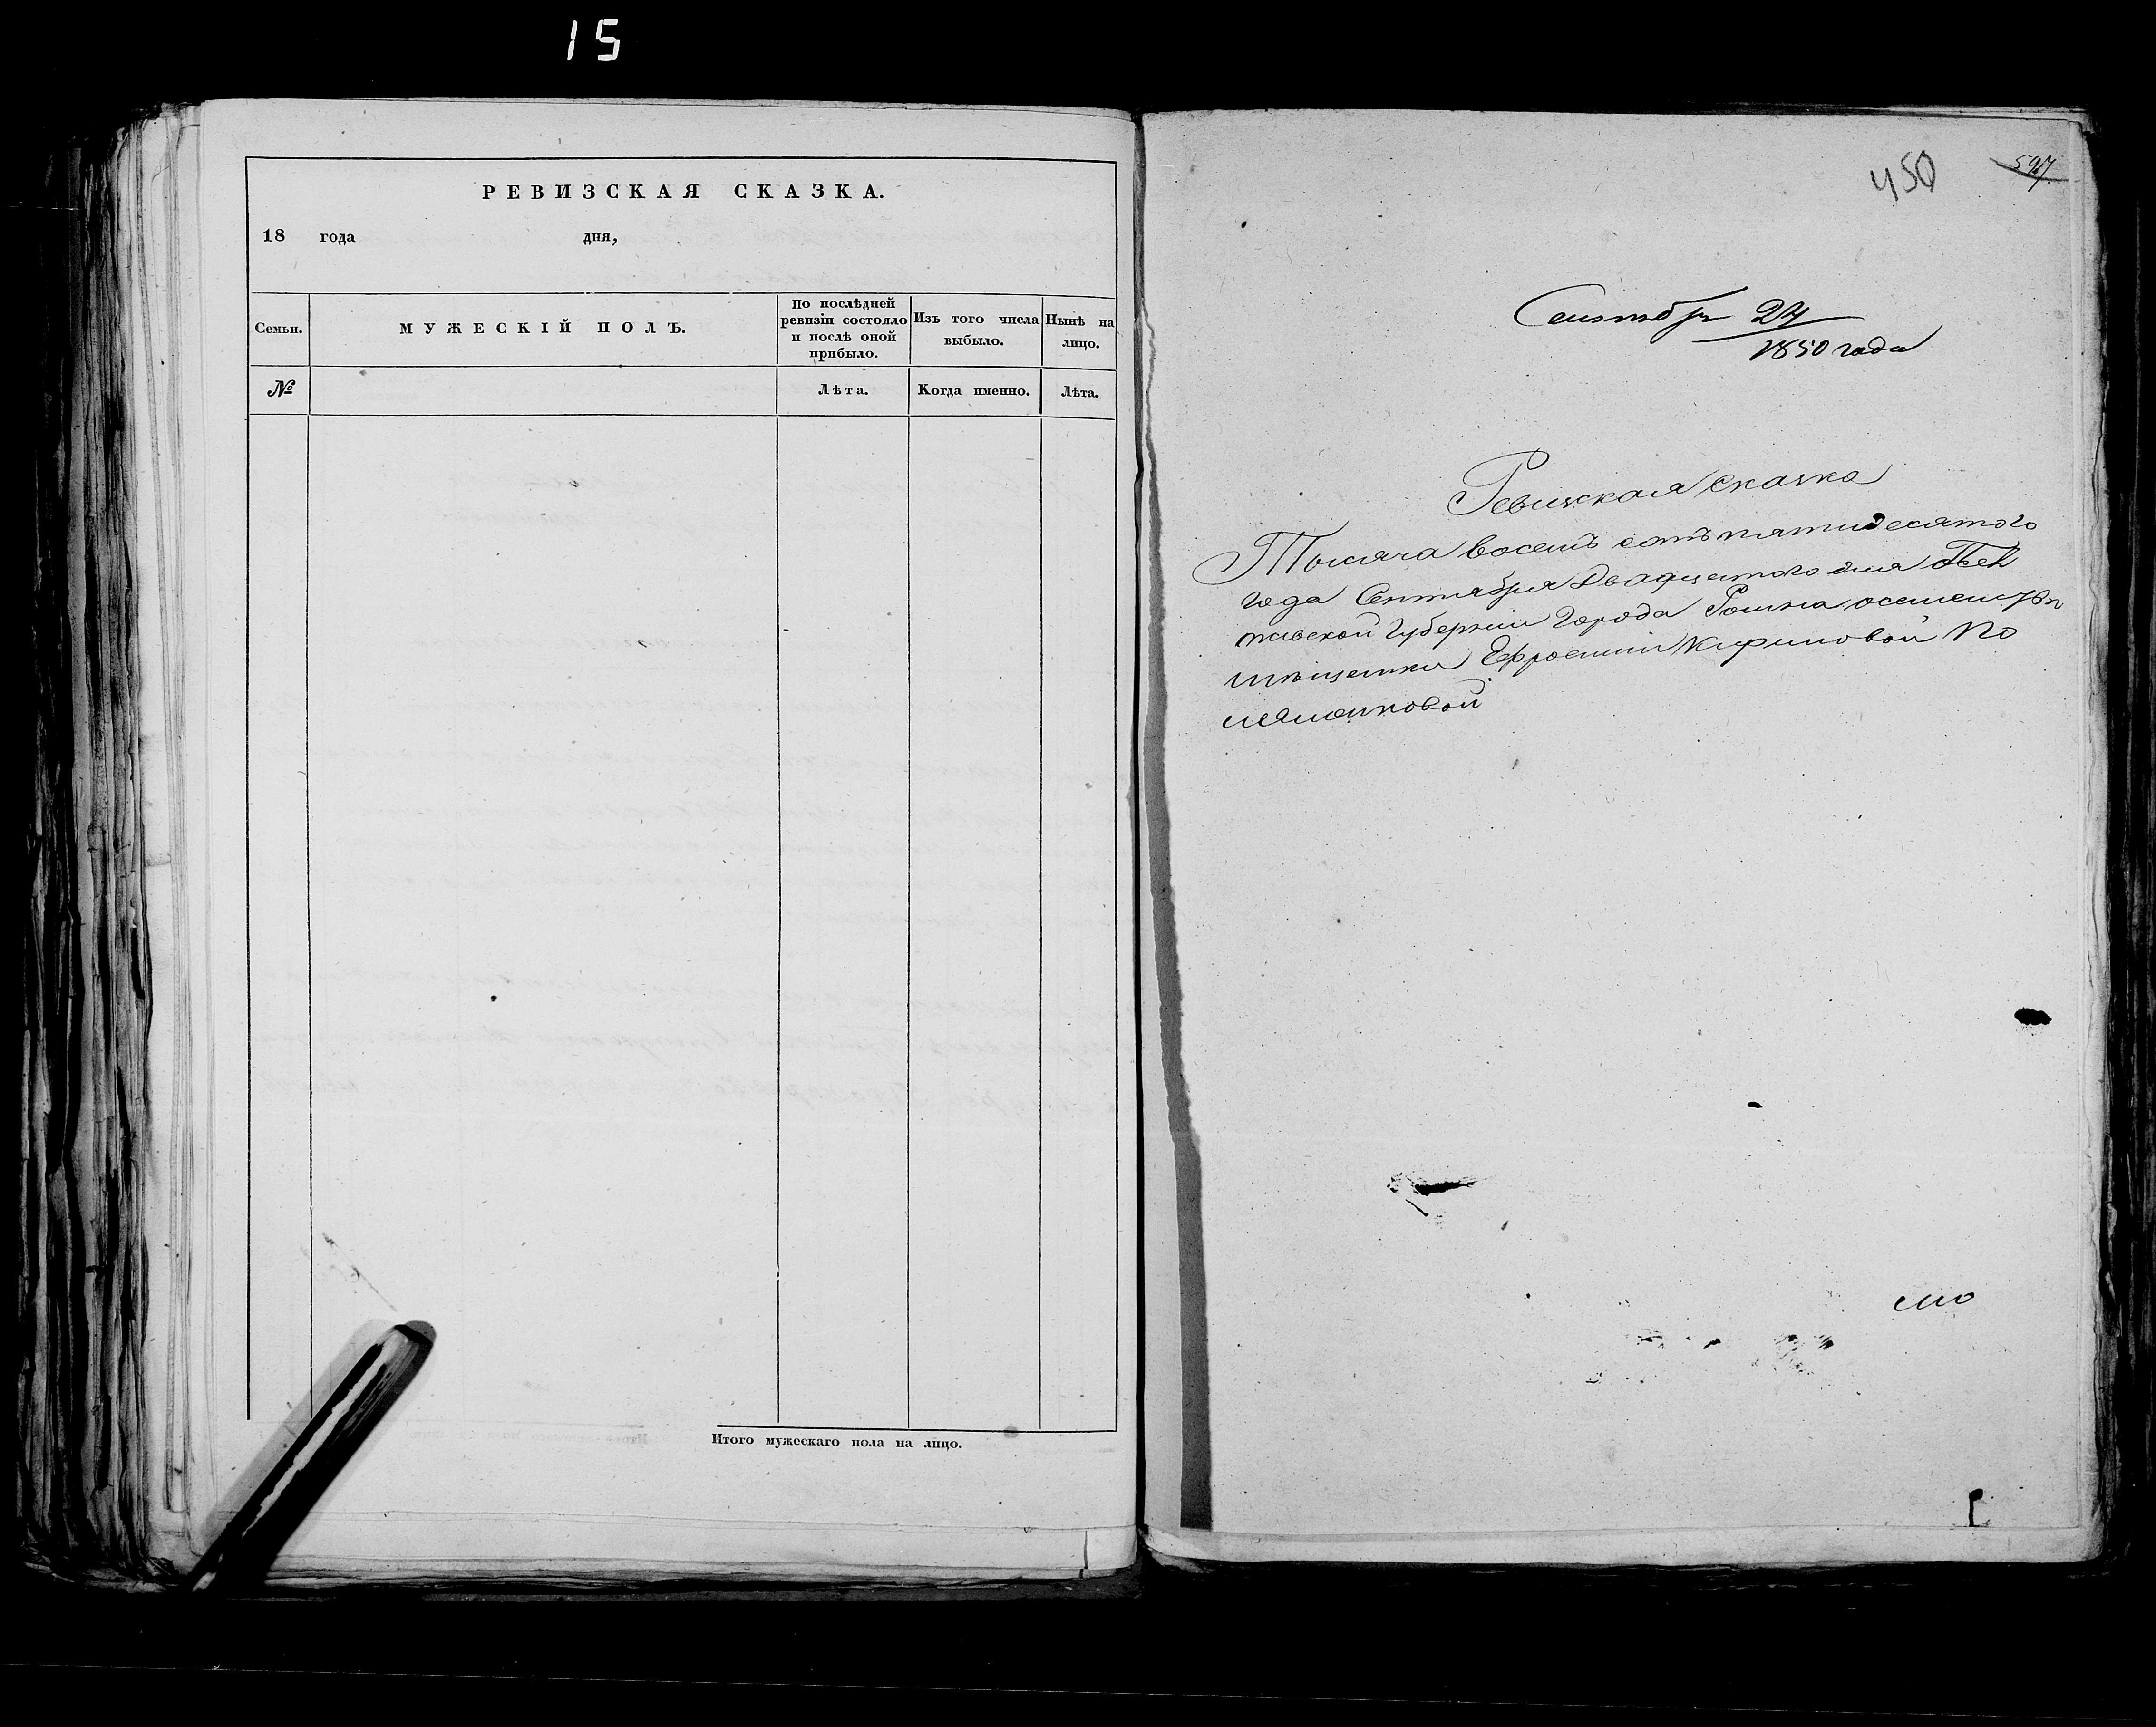 15
РЕВИЗСКАЯ СКАЗКА.
18 года дня,
Семьи.
МУЖЕСКІЙ ПОЛЪ.
По послѣдней
ревизіи состояло
и послѣ оной
прибыло.
Изъ того числа
выбыло.
Нынѣ на
лицо.
№
Лѣта.
Когда именно.
Лѣта.
Итого мужескаго пола на лицо.
450
597
Сентября
1850 года
Ревизская сказка
Тысяча восемъ сотъ пятидесятого
года Сентября двадцятого дня
Губернии Города Ромна
Ефросинии По